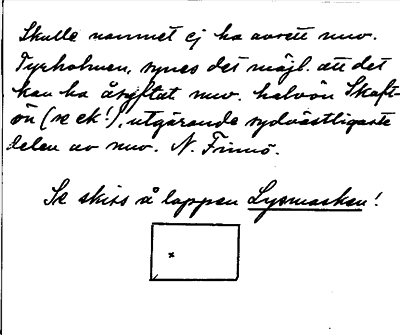 Skulle namnet ej ha avsett nuv.
Tyrholmen, synes det möjl. att det
kan ha åsyftat nuv. halvön Skaft-
ön (se ek!), utgörande sydvästligaste
delen av nuv. N. Finnö.
Se skiss å lappen Lysmasken!